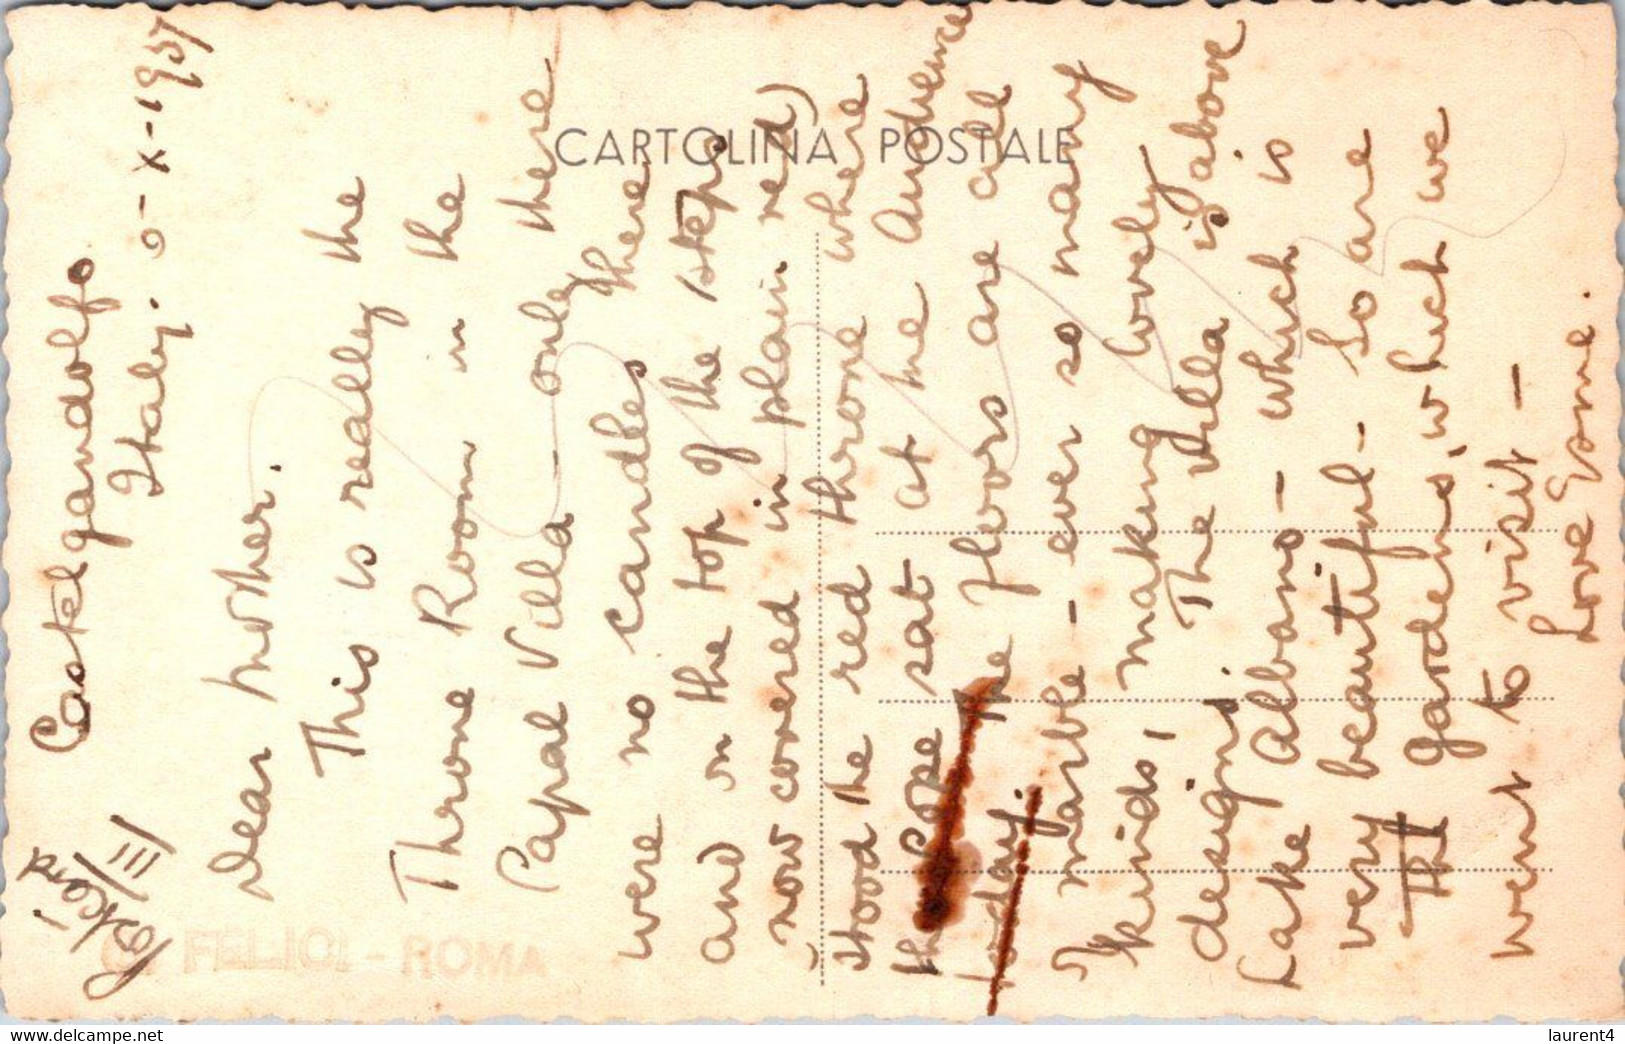 Postcard III/III
Castelgandolfo
Italy. 5-X-1957
Dear Mother.
This is really the
Throne Room in the
Papal Villa - only there
were no candles there
and on the top of the steps
(now covered in plain red)
stood the red throne where
the Pope sat at the Audience
today. The floors are all
marble - ever so many
kinds, making lovely
designs. The villa is above
Lake Albano - which is
very beautiful - So are
The gardens, which we
went to visit -
Love Esme.
CARTOLINA POSTALE
G. FELICI - ROMA
delcampe.net
laurent4